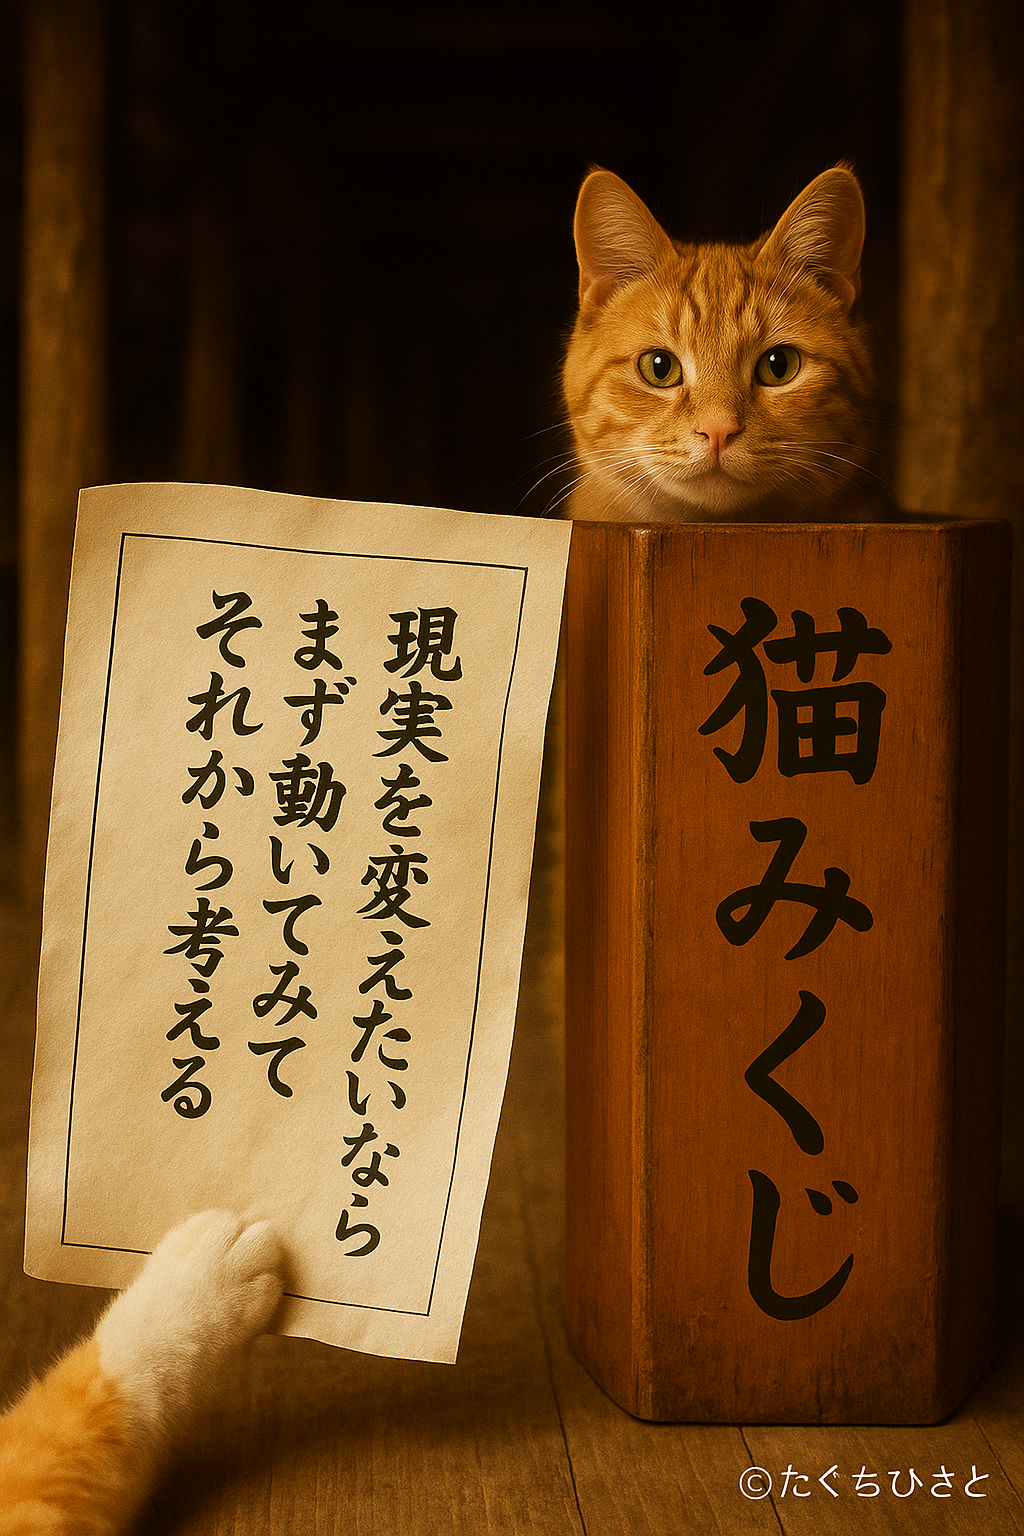 現実を変えたいなら
まず動いてみて
それから考える
猫みくじ
©たぐちひさと